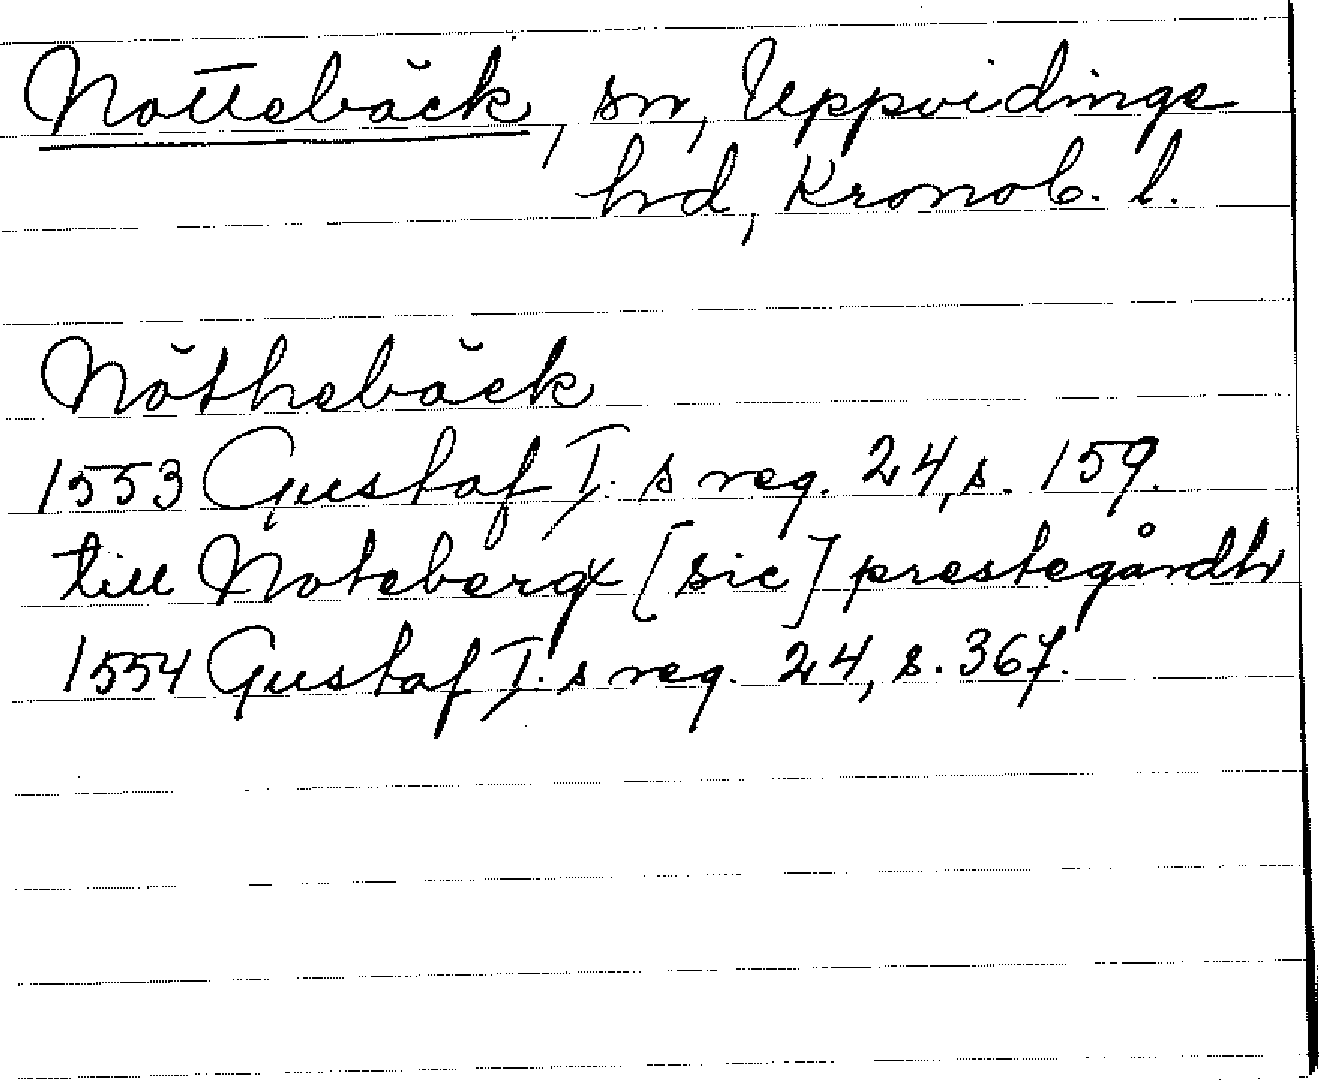 Nottebäck, sn, Uppvidinge
hd, Kronob. l.
Nöthebäck
1553 Gustaf I:s reg. 24, s. 159.
till Notebergx [sic] prestegårdh
1554 Gustaf I:s reg. 24, s. 367.